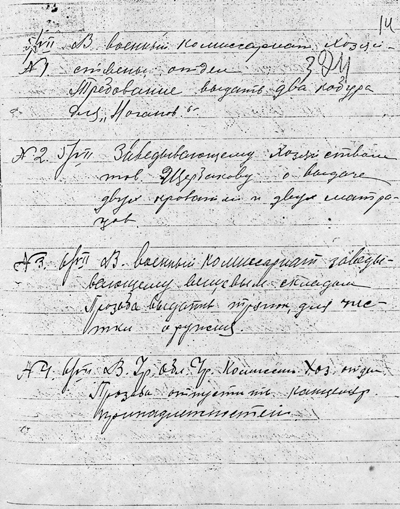 14
5/VII В военный комиссариат хозяй-
№1 ственный отдел
Требование выдать два кобура
для „Наганов“
№2. 5/VII Заведывающему Хозяйством
Щербакову о выдаче
двух кроватей и двух матра-
цов
№3. 6/VII В военный комиссариат заведы-
вающему вещевым складом
Прозьба выдать тряпок для чис-
тки оружия.
№4. 6/VII В. Гр. обл. Чр. Комиссии Хоз. отдел
Прозьба отпустить канцеляр.
принадлежностей